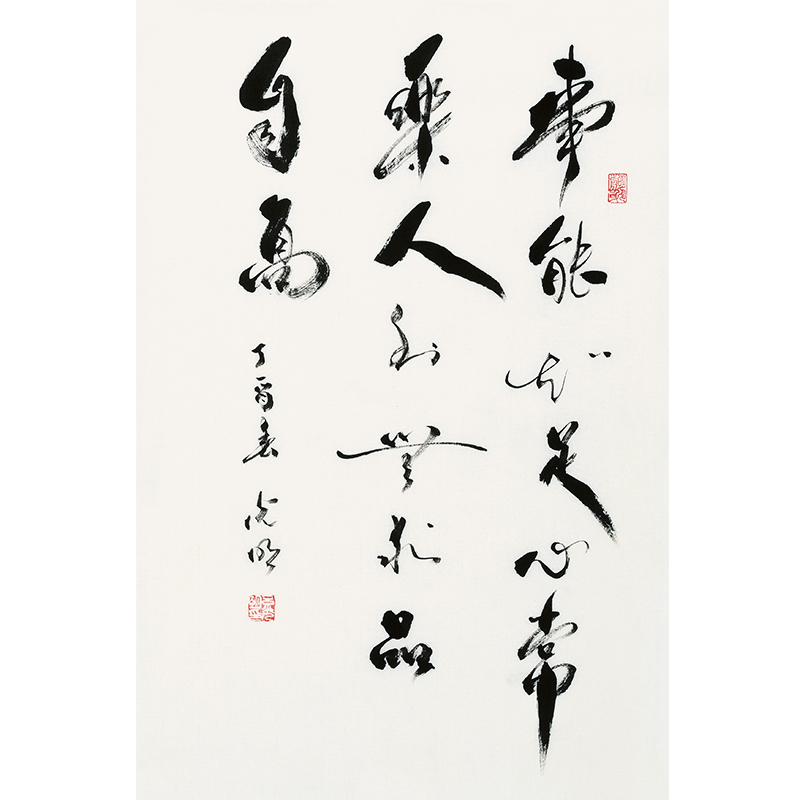 事能知足心常
樂人到無求品
自高 丁酉春